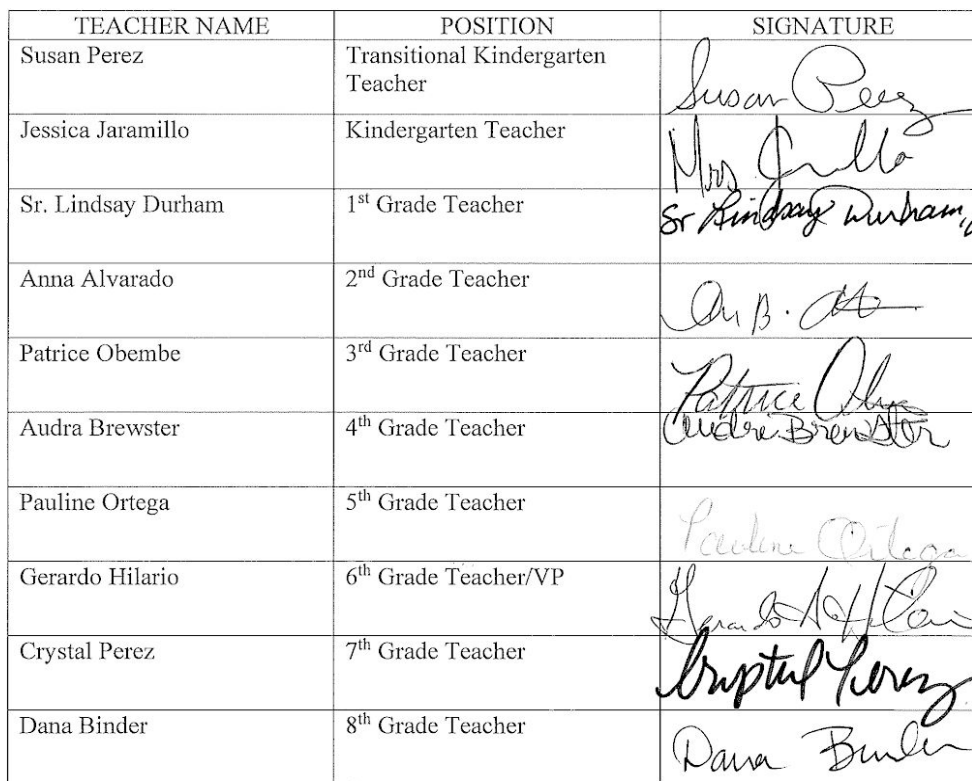 TEACHER NAME POSITION SIGNATURE
Susan Perez Transitional Kindergarten Teacher Susan Perez
Jessica Jaramillo Kindergarten Teacher Mrs
Sr. Lindsay Durham 1st Grade Teacher Sr Lindsay Durham,
Anna Alvarado 2nd Grade Teacher
Patrice Obembe 3rd Grade Teacher Patrice
Audra Brewster 4th Grade Teacher Audra Brewster
Pauline Ortega 5th Grade Teacher Pauline Ortega
Gerardo Hilario 6th Grade Teacher/VP Gerardo A Hilario
Crystal Perez 7th Grade Teacher Crystal Perez
Dana Binder 8th Grade Teacher Dana Binder